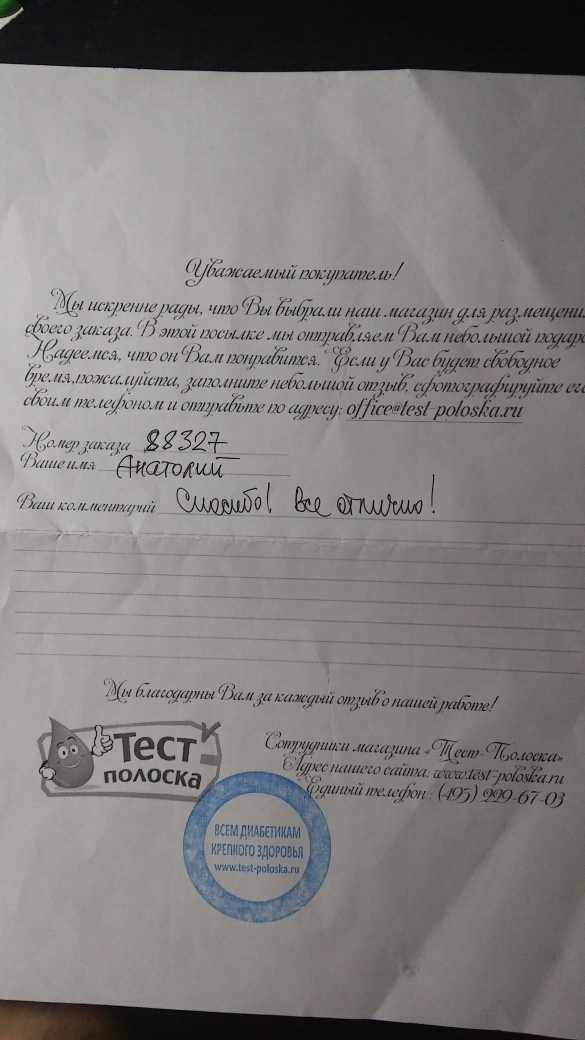 Уважаемый покупатель!
Мы искренне рады, что Вы выбрали наш магазин для размещени
своего заказа. В этой посылке мы отправляем Вам небольшой подаро
Надеемся, что он Вам понравится. Если у Вас будет свободное
время,пожалуйста, заполните небольшой отзыв, сфотографируйте его
своим телефоном и отправьте по адресу: office@test-poloska.ru
Номер заказа 88327
Ваше имя Анатолий
Ваш комментарий Спасибо! Все отлично!
Мы благодарны Вам за каждый отзыв о нашей работе!
Тест
полоска
Сотрудники магазина «Тест-Полоска»
Адрес нашего сайта: www.test-poloska.ru
Единый телефон: (495) 229-67-03
ВСЕМ ДИАБЕТИКАМ
КРЕПКОГО ЗДОРОВЬЯ
www.test-poloska.ru